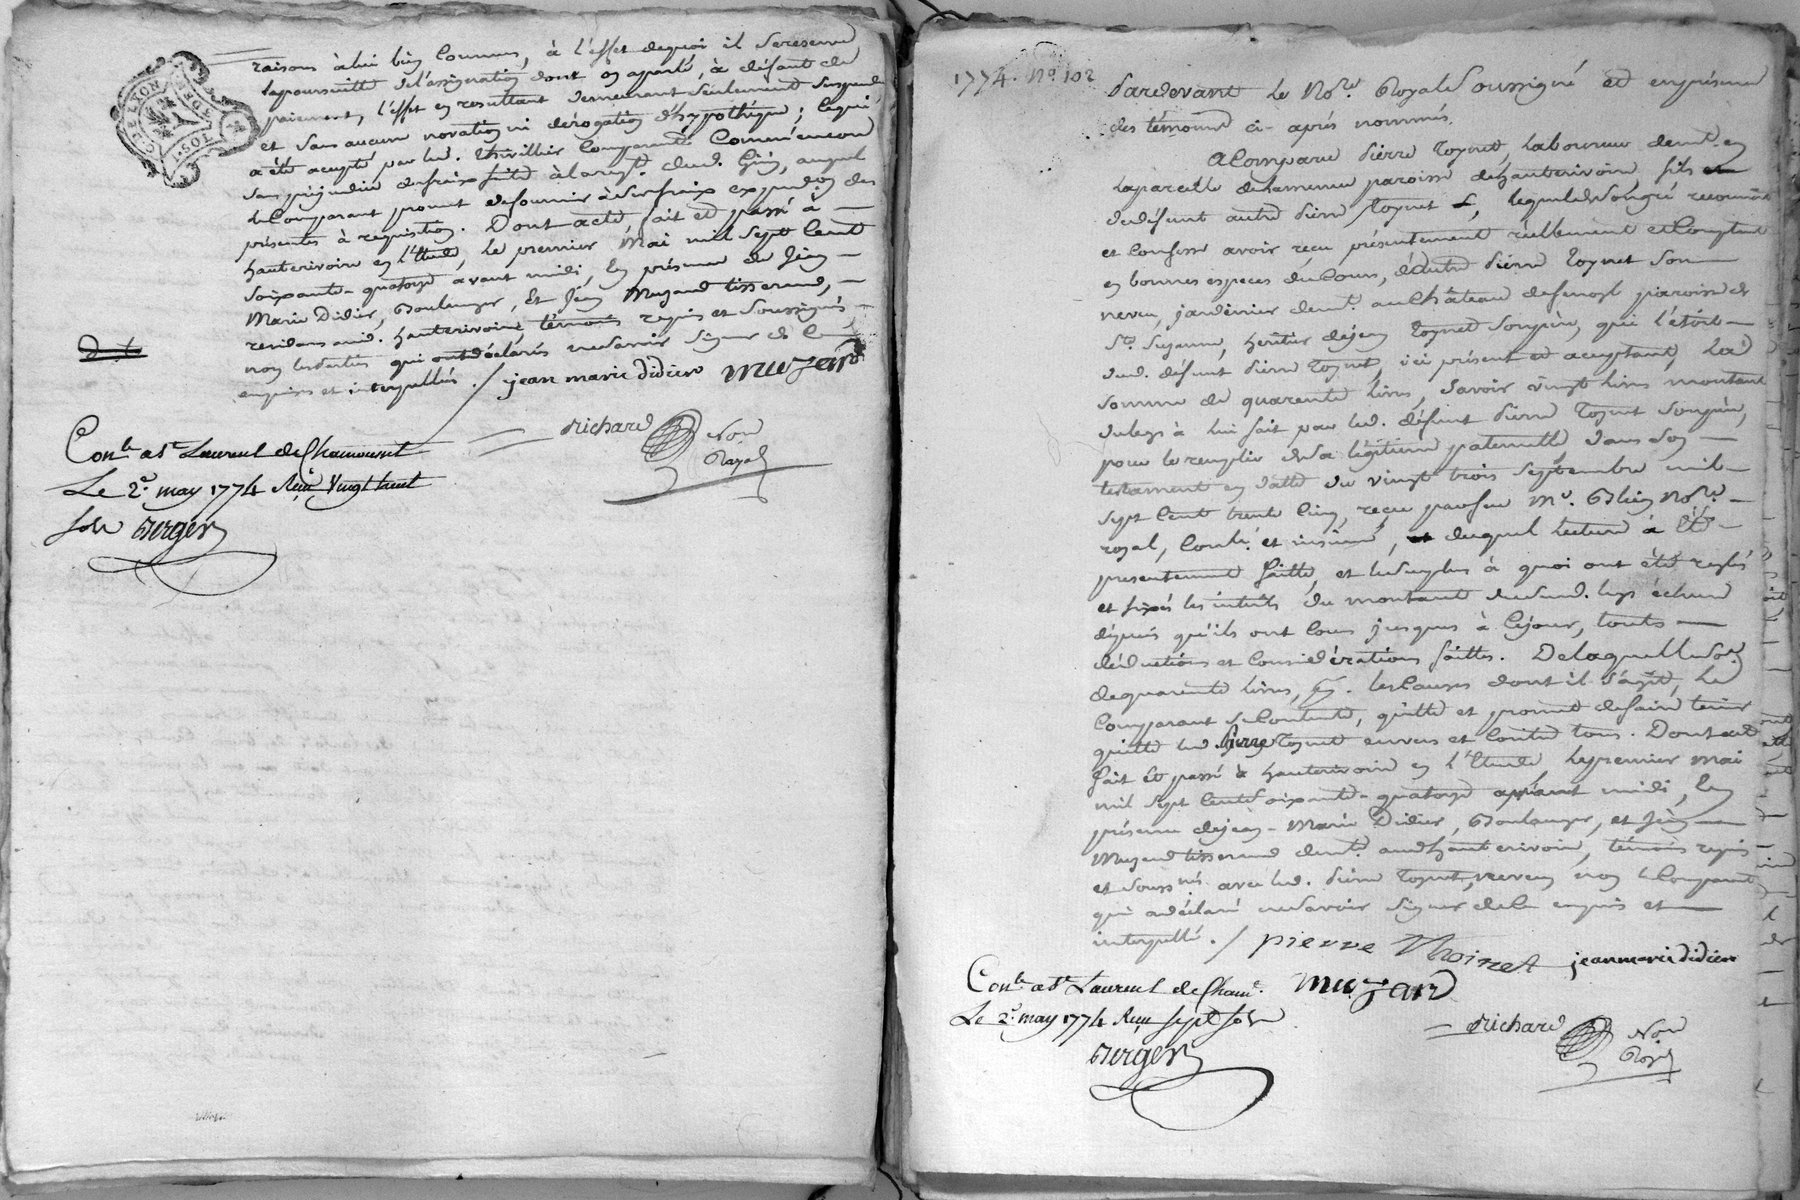 raisons à lui bien connues, à l'effet de quoi il se reserve
la poursuitte de l'assignation dont on a parlé, à défaut de
paiement, l'effet en resultant demeurant seulement suspendu
et sans aucune novation ni dérogation d'hypothèque; ce qui
a été accepté par led. Thivillier Comparant
sans préjudice des fraix faits à la req.te dud. Giry, auquel
le Comparant promet de fournir à ses fraix expedon des
présentes à requisition. Dont acte fait et passé à
hauterivoire en l'Etude, le premier Mai mil sept cent
soixante-quatorze avant midi, en présence de Jean
Marie Didier, Boulanger, et Jean Muzard tisserand,
residans aud. hauterivoire, témoins requis et soussignés
non les parties qui ont déclarés ne savoir signer de ce
enquises et interpellées ./
jean marie didier muzard
richard Nore
Royal
Conlé a St Laurent de Chamousset
Le 2e. may 1774 Reçu Vingt huit
sols Berger
C. DE LYON
1774. No 102
Pardevant le Nore. Royal Soussigné et en présence
des témoins ci-après nommés.
A Comparu Pierre Toynet, Laboureur demt. en
la parcelle de paroisse de hauterivoire fils
de défunt autre Pierre Toynet, lequel de son gré reconnoit
et confesse avoir reçu présentement réellement et Comptant
en bonnes especes du Cours, d'autre Pierre Toynet son
neveu, jardinier demt. au Château de paroisse de
Ste. heritier de jean Toynet son père, qui l'étoit
dud. défunt Pierre Toynet, ici présent et acceptant, La
somme de quarente livres, savoir vingt livres montant
du legs à lui fait par led. défunt Pierre Toynet son père,
pour le remplir de sa légitime paternelle dans son
testament en datte du vingt trois Septembre mil
sept cent trente cinq, reçu par feu Me. Blein Nore.
royal, conlé. et insinué, duquel lecture a été
presentement faitte, et le surplus à quoi ont été reglés
et fixés les interets du montant du susd. legs échus
dépuis qu'ils ont cours jusques à ce jour, toutes
déductions et considérations faittes. De laquelle so.e
de quarente livres, les causes dont il s'agit, Le
Comparant se Contente, quitte et promet de faire tenir
quitte led. Pierre Toynet envers et contre tous. Dont acte
fait et passé à hauterivoire en l'Etude le premier mai
mil sept cent soixante-quatorze après midi, en
présence de jean-Marie Didier, Boulanger, et jean
Muzard tisserand demt. aud. hauterivoire, témoins requis
et soussnés. avec led. Pierre Toynet, neveu, non le Comparant
qui a déclaré ne savoir signer de ce enquis et
interpellé ./ pierre Thoinet jean marie didier
muzard
Conlé a St Laurent de Chamt.
Le 2e. may 1774 Reçu sept sols
Berger
richard Nore
Royal